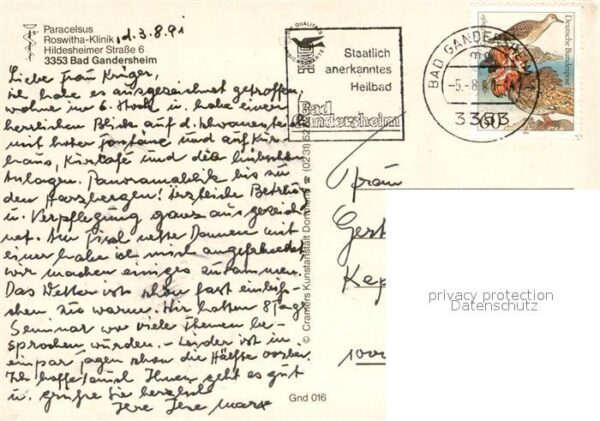 Paracelsus
Roswitha-Klinik
Hildesheimer Straße 6
3353 Bad Gandersheim
d. 3.8.91
Liebe Frau Krüger,
ich habe es ausgezeichnet getroffen,
wohne im 6. Stock u. habe einen
herrlichen Blick auf d. Schwanenteich
mit hoher Fontäne und auf Kur-
haus, Kurcafé und die hübschen
Anlagen. Panoramablick bis zu
den Harzbergen! Ärztliche Betreu
u. Verpflegung ganz ausgezeich-
net. Am Tisch nette Damen mit
einer habe ich mich angefreundet
wir machen einiges zusammen.
Das Wetter ist schon fast
zu warm. Wir hatten 8 Tage
Seminar wo viele Themen be-
sprochen würden. - Leider ist in
ein paar Tagen schon die Hälfte vorbei.
Ich hoffe, auch Ihnen geht es gut
u. grüße Sie herzlich
Ihre Ilse Marx
Gnd 016
© Cramers Kunstanstalt Dortmund
Staatlich
anerkanntes
Heilbad
Bad
Gandersheim
BAD GANDERSHEIM
-5.-8.
3353
Deutsche Bundespost
60
Frau
Gert
Kep
1000
privacy protection
Datenschutz